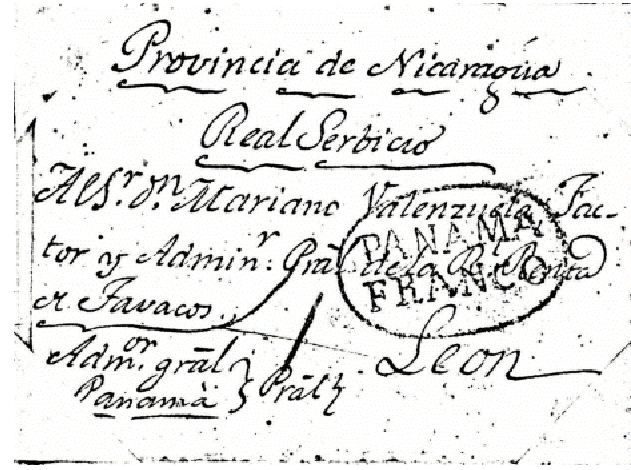 Provincia de Nicaragua
Real Serbicio
Al Sr. Dn. Mariano Valenzuela Fac-
tor y Adminr. Gral de la Rl Renta
de Tavacos.
PANAMA
FRANCO
Leon
Admor. gral
Panamà